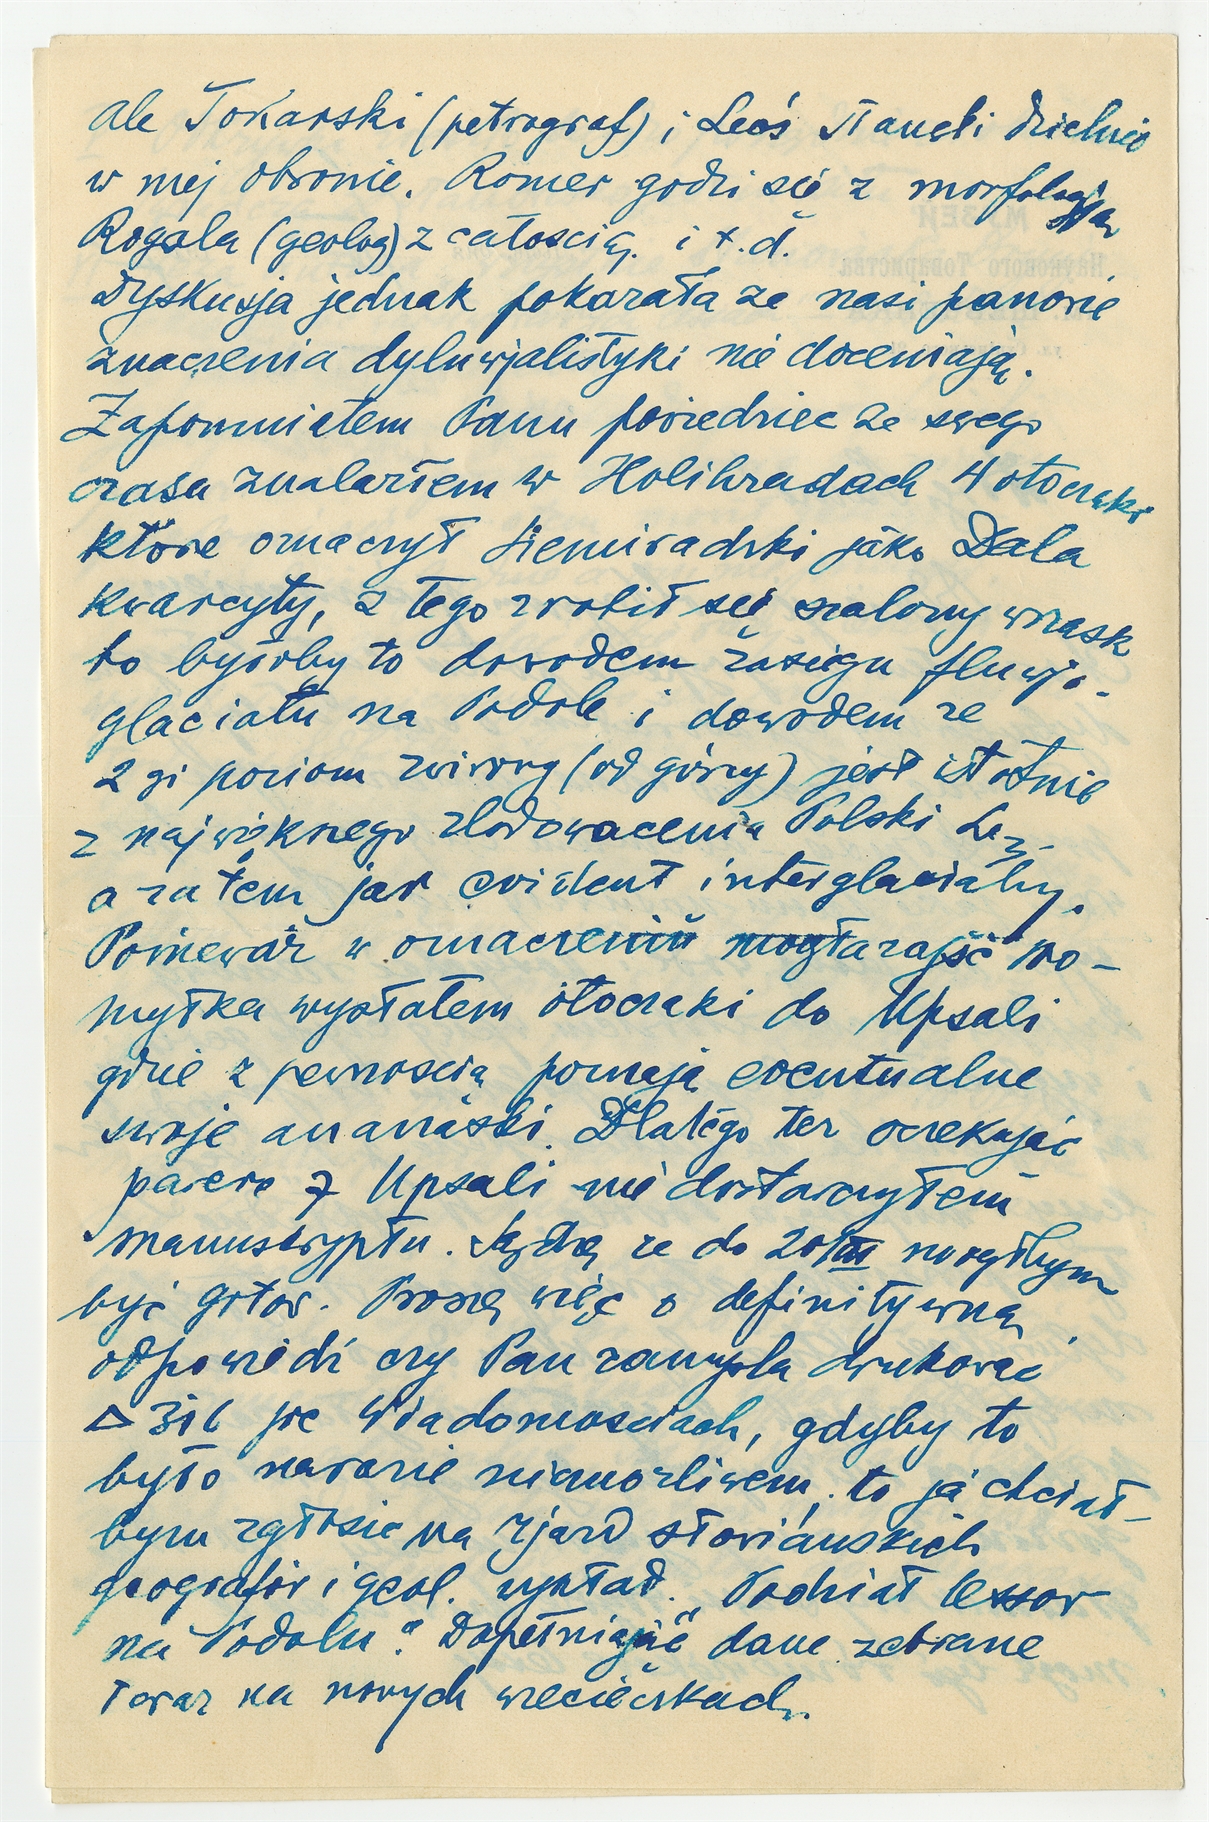 ale Tokarski (petrograf) i Leoś stanęli dzielnie
w mej obronie. Romer godzi się z morfologją
Rogala (geolog) z całością. i t.d.
Dyskusja jednak pokazała ze nasi panowie
znaczenia dyluwjalistyki nie doceniają.
Zapomniałem Panu powiedziec ze swego
czasu znalazłem w Holihradach 4 otoczaki
które oznaczył Siemiradzki jako Dala
kwarcyty, z tego zrobił się szalony wrzask
bo byłoby to dowodem zasięgu fluwjo-
glaciału na Podole i dowodem ze
2 gi poziom zwirowy (od góry) jest istotnie
z największego zlodowacenia Polski L3
a zatem jar evident interglacialny.
Poniewaz w oznaczeniu mogła zajść po-
myłka wysłałem otoczaki do Upsali
gdzie z pewnoscią poznają eventualne
swoje ananaski. Dlatego tez oczekując
pareré z Upsali nie dostarczyłem
manuskryptu. Sądzę ze do 20/III mógłbym
być gotow. Proszę więc o definitywną
odpowiedź czy Pan zamyśla drukować
we Wiadomosciach, gdyby to
było narazie niemozliwem, to ja chciał-
bym zgłosic na zjazd słowianskich
geografów i geol. wykład „Podział lessow
na Podolu." Dopełniając dane zebrane
teraz na nowych wycieczkach.